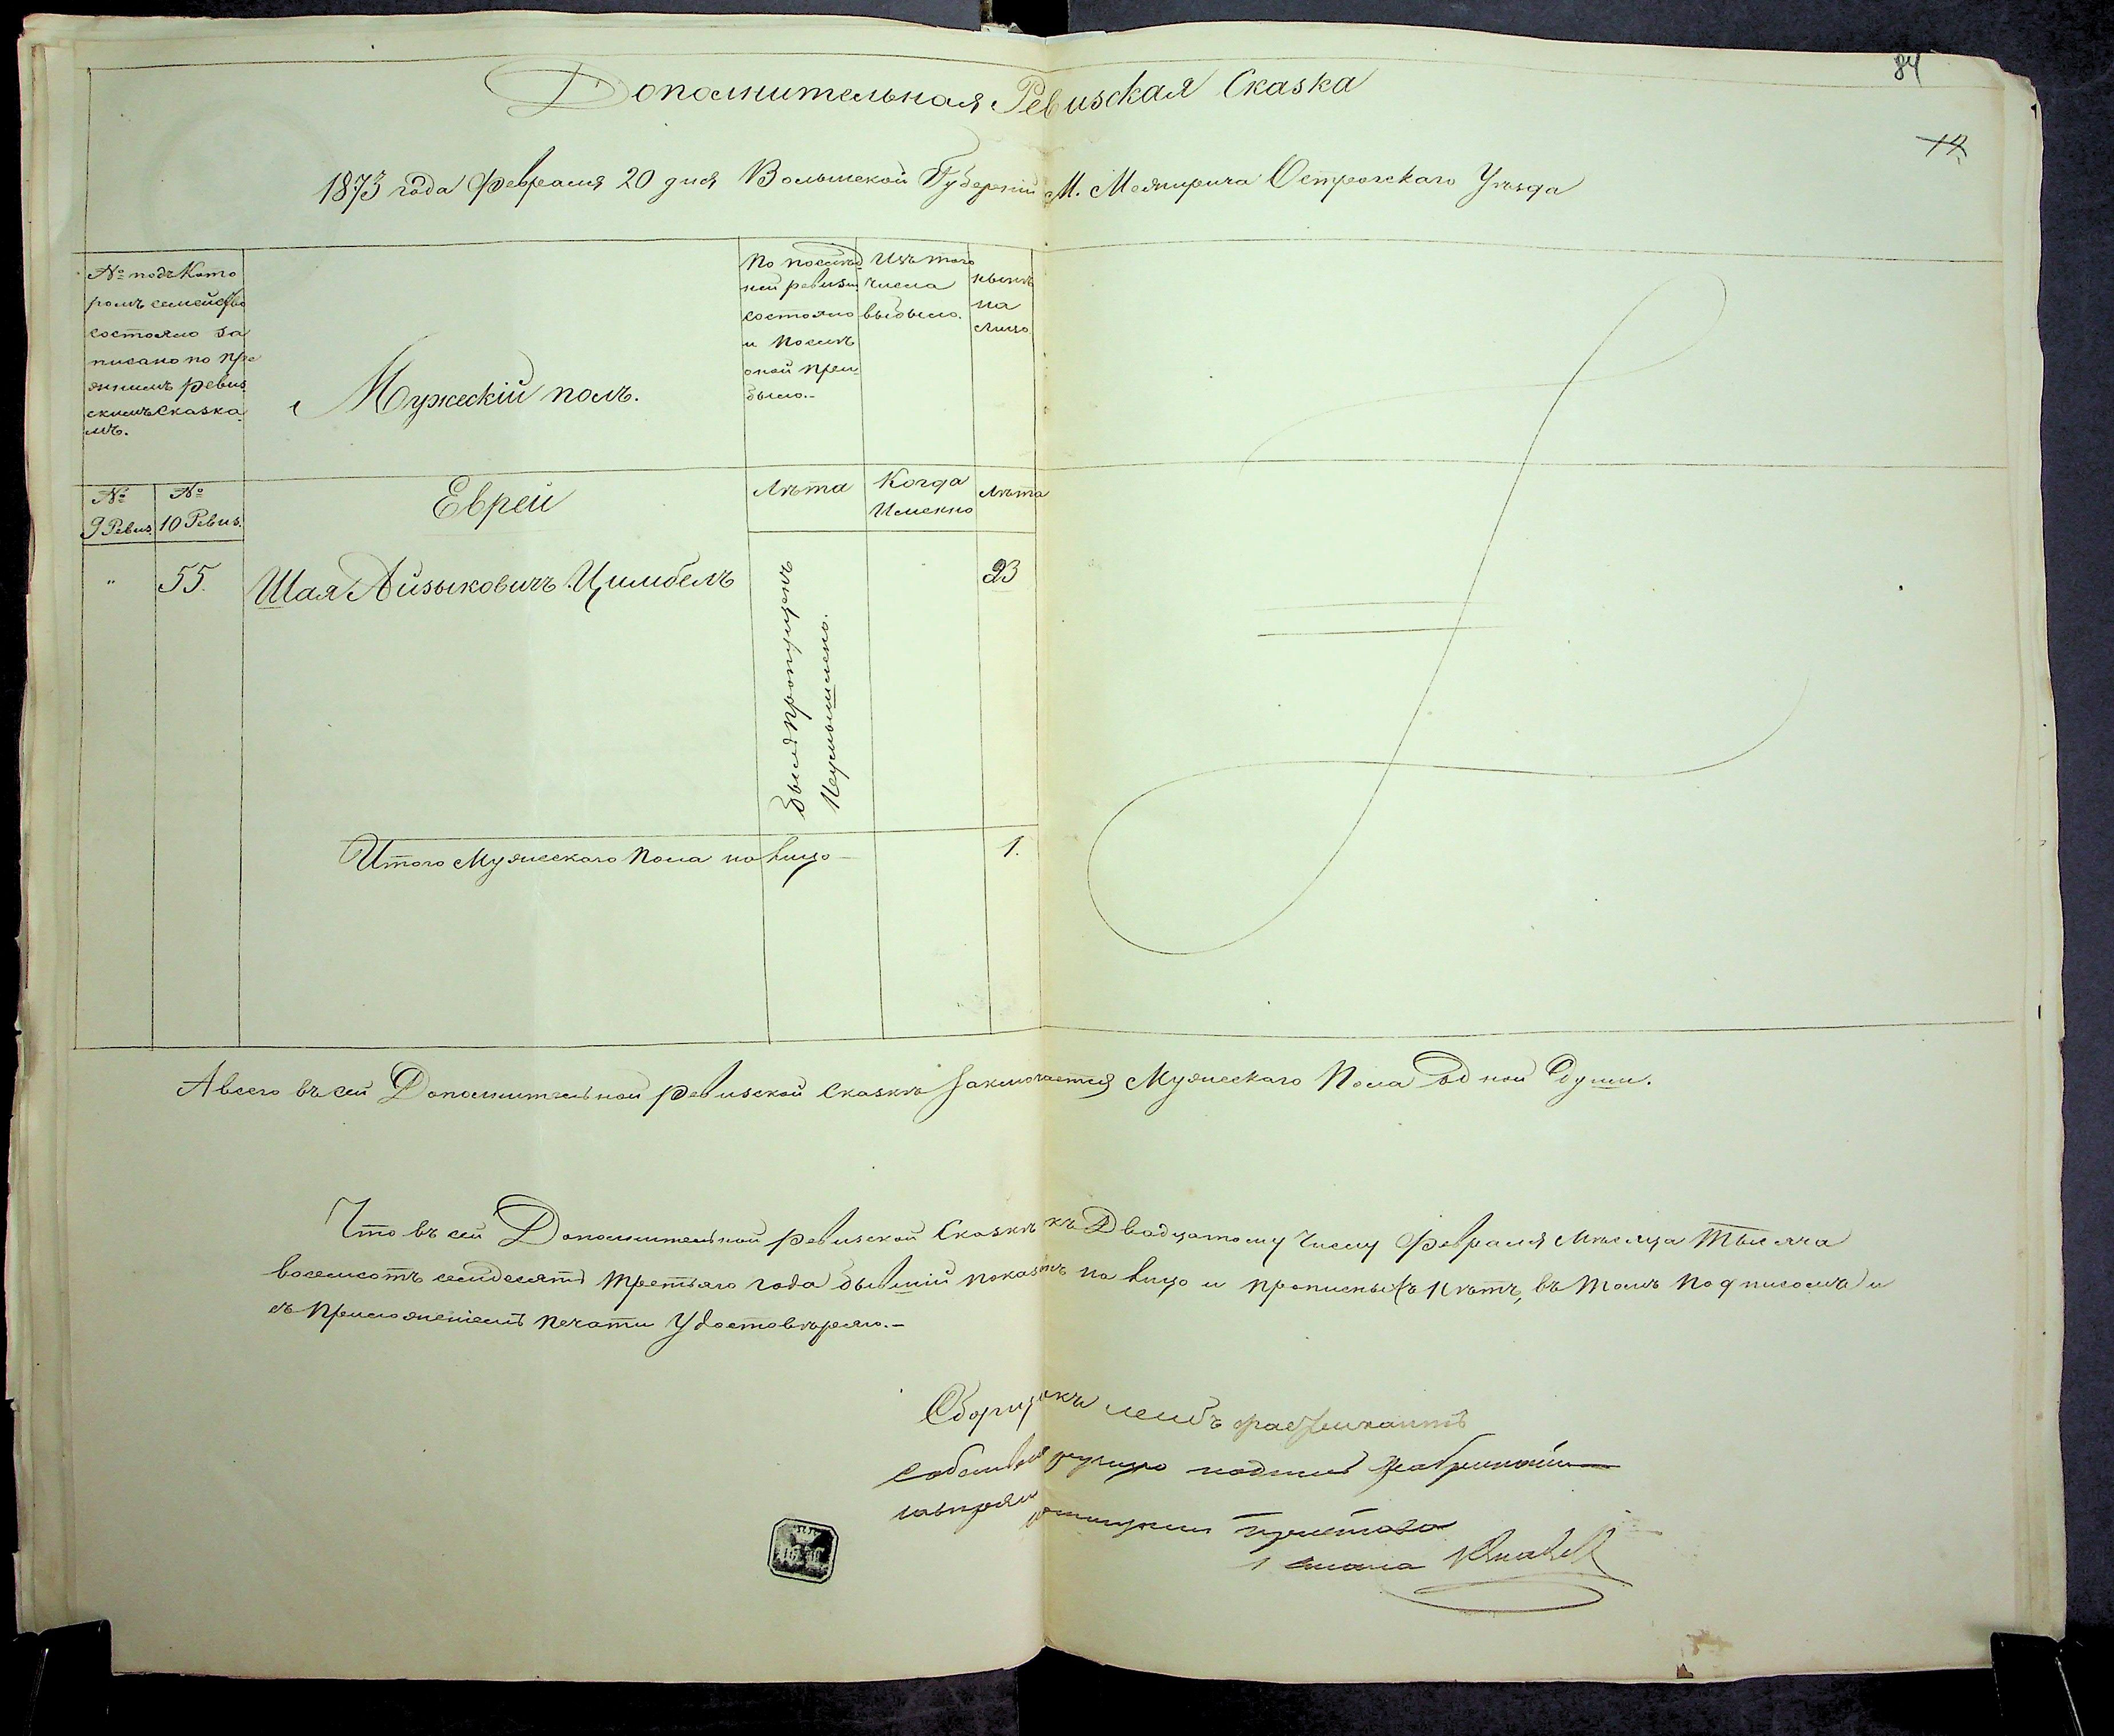 84
12
Дополнительная Ревизская Сказка
1873 года Февраля 20 дня Волынской Губерніи М. Межирича Острожскаго Уѣзда
№ подъ Кото
ромъ семейство
состояло за
писано по пре
жнимъ ревиз
скимъ сказка
мъ.
Мужескій полъ.
По послѣд
ней ревизіи
состояло
и послѣ
оной при
было.-
Изъ того
числа
выбыло.
нынѣ
на
лицо
№
9 Ревиз.
№
10 Ревиз.
Еврей
Лѣта
Когда
Именно
Лѣта
" 55. Шая Айзыковичъ Цимбелъ
Былъ пропущенъ
Неумышлено.
23
Итого Мужескаго Пола на лицо - 1.
А всего въ сей Дополнительной ревизской Сказкѣ заключается Мужескаго Пола одной души.
Что въ сей Дополнительной ревизской Сказкѣ къ Двадцатому Числу Февраля Мѣсяца Тысяча
восемсотъ семдесятъ третьяго года бывшій показанъ на лицо и прописныхъ нѣтъ, въ томъ подписомъ и
съ приложеніемъ печати Удостовѣряю.-
Сборщикъ
пристава
1 стана